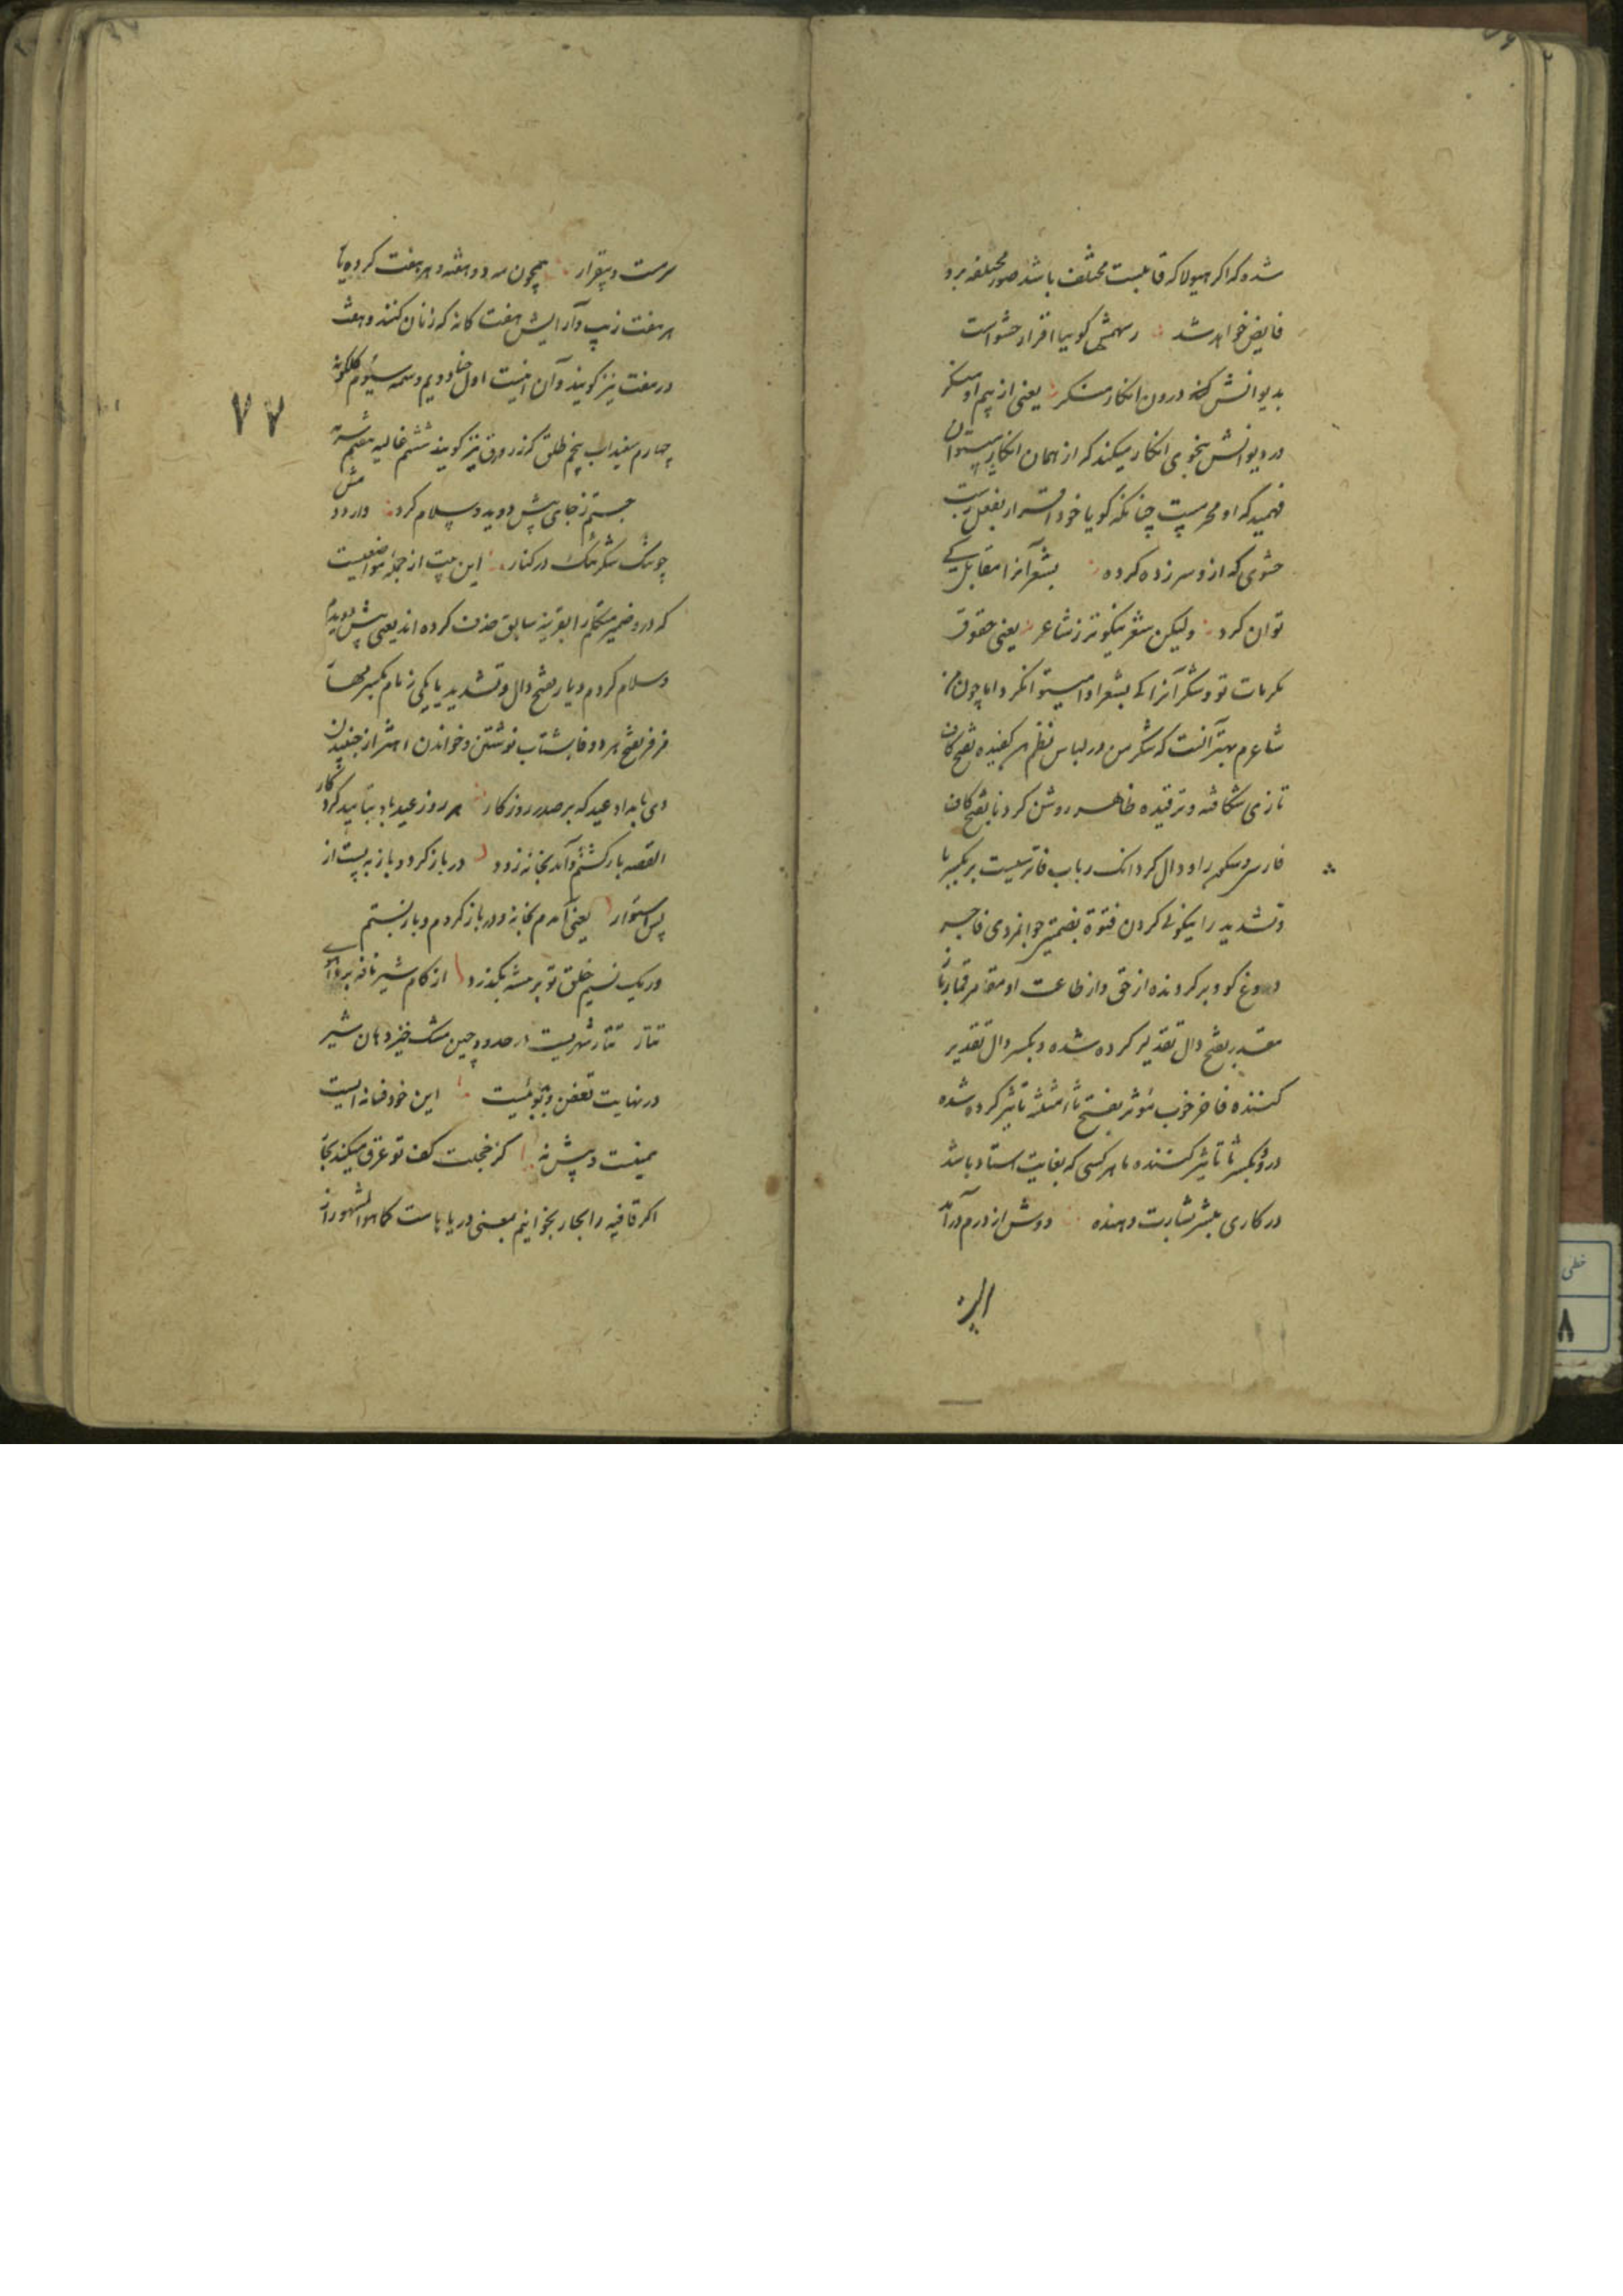 شد و که اکر هیولا که قابلیت مختلف باشد صور مختلفه برو
فایض خواهد شد رسهمش کوییا اقرار حشو است
بدیوانش درون انکار منکر یعنی از بیم او منکر
در دیوانش بنحوی انکار میکند که از همان انکار میتوان
فهمید که او مجرمیست چنانکه کویا خود اقرار بفعل
حشوی که از و سر زده کرده بشعر آنرا مقابل کی
توان کرد ولیکن شعر نیکوتر ز شاعر یعنی حقوق
مکرمات تو و شکر آنرا که بشعر ادا میتوانکرد اما چون من
شاعرم بهتر آنست که شکر من در لباس نظم هر کفیده بفتح کاف
تازی شکافته و ترقیده ظاهر روشن کردنا بفتح کاف
فارسی و سکون را و دال کردانک رباب فاتر سست بر بکسر با
و تشدید را نیکوئی کردن فتوة بضمتین جوانمردی فاجر
دروغ کو و برکردنده از حق و از طاعت او مقامر قمارباز
مقدر بفتح دال تقدیر کرده شده و بکسر دال تقدیر
کننده فاخر خوب مؤثر بفتح ثا مثلثه تاثیر کرده شده
درو و بکسر ثا تاثیر کننده ماهر کسی که بغایت استاد باشد
در کاری مبشر بشارت دهنده دوش از درم درآمد
سرمست و بیقرار همچون مه دو هفته و هر هفت کرده یا
هر هفت زیب و آرایش هفت کانه که زنان کنند و هفت
در هفت نیز کویند و آن اینست اول حنا دویم وسمه سیوم کلکونه
چهارم سفیداب پنجم طلق که زرورق نیز کویند ششم غالیه هفتم سرمه
۷۷
جستم ز جای پیش دوید و سلام کرد واردد
چو تنک شکر تنک در کنار این بیت از جمله مواضعیست
که درو ضمیر متکلم را بقرینه سابق حذف کرده اند یعنی پیش دویدم
و سلام کردم دیار بفتح دال و تشدید یا یکی ز نام بکسر
فرفر بفتح هر دو فا بشتاب نوشتن و خواندن اهتزاز جنبیدن
دی بامداد عید که بر صدر روزکار هر روز عید باد بتایید کردکار
القصه بازکشتم و آمد بخانه زود در باز کرد و باز به بست از
پس استوار یعنی آمدم بخانه و در باز کردم و باز بستم
ور یک نسیم خلق تو بر بیشه بکذرد از کام شیر نافه برد آهوی
تتار تتار شهریست از حدود چین مشک خیز دهان شیر
در نهایت تعفن و بدبوئیست این خود فسانه ایست
یمینت و پیش نه کز خجلت کف تو عرق میکند بحار
اکر قافیه را بحار بخوانیم بمعنی دریاهاست کما هو المشهور از